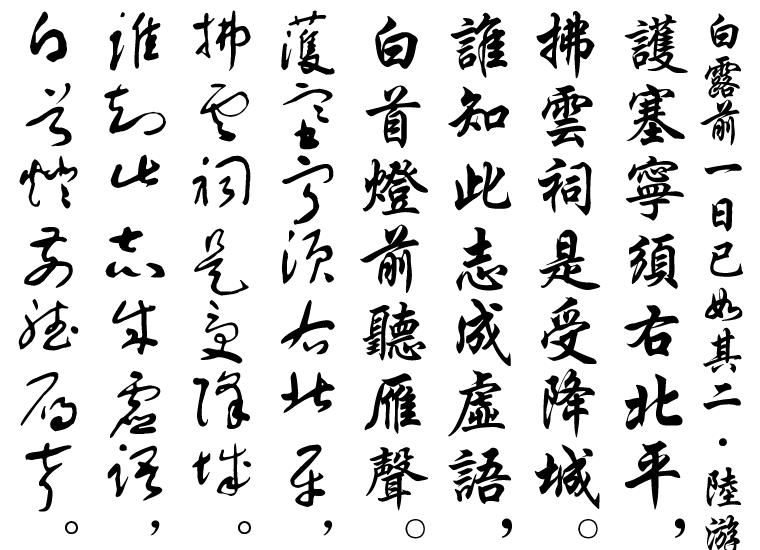 白露前一日已如其二・陸游
護塞寧須右北平，
拂雲祠是受降城。
誰知此志成虛語，
白首燈前聽雁聲。
護塞寧須右北平，
拂雲祠是受降城。
誰知此志成虛語，
白首燈前聽雁聲。